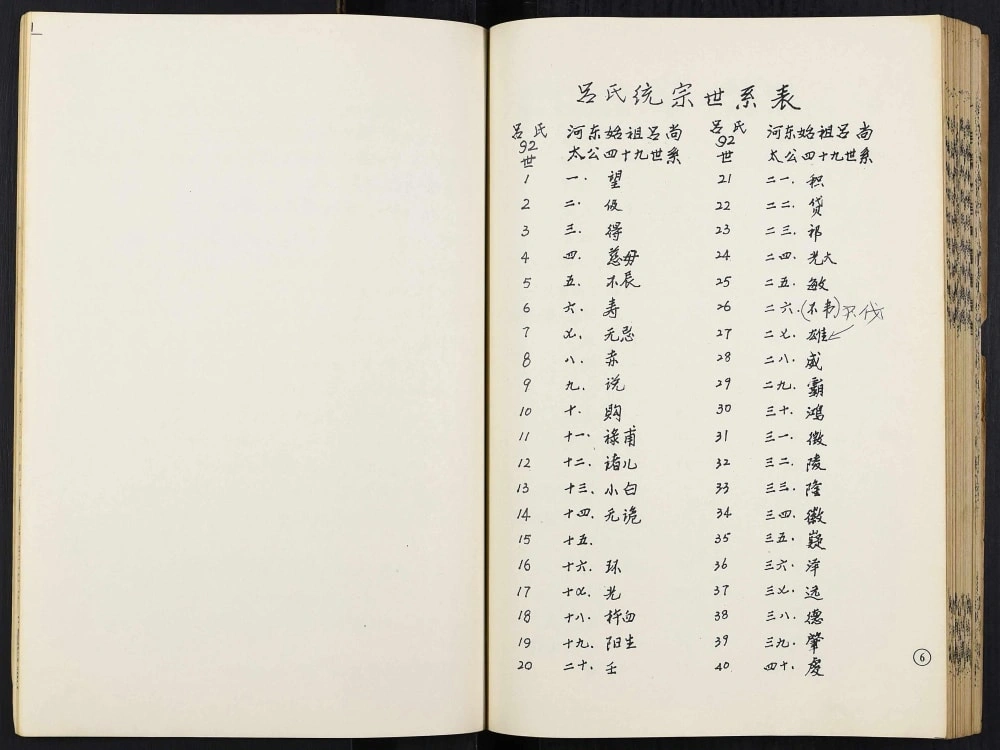 吕氏统宗世系表
吕氏92世 河东始祖吕尚太公四十九世系
1 一. 望
2 二. 伋
3 三. 得
4 四. 慈毋
5 五. 不辰
6 六. 寿
7 七. 无忌
8 八. 赤
9 九. 说
10 十. 购
11 十一. 禄甫
12 十二. 诸儿
13 十三. 小白
14 十四. 无诡
15 十五.
16 十六. 环
17 十七. 光
18 十八. 杵臼
19 十九. 阳生
20 二十. 壬
吕氏92世 河东始祖吕尚太公四十九世系
21 二一. 积
22 二二. 贷
23 二三. 祁
24 二四. 光大
25 二五. 敏
26 二六.(不韦)
27 二七. 雄
28 二八. 威
29 二九. 霸
30 三十. 鸿
31 三一. 徵
32 三二. 陵
33 三三. 隆
34 三四. 徽
35 三五. 嶷
36 三六. 泽
37 三七. 远
38 三八. 德
39 三九. 肇
40 四十. 虔
6